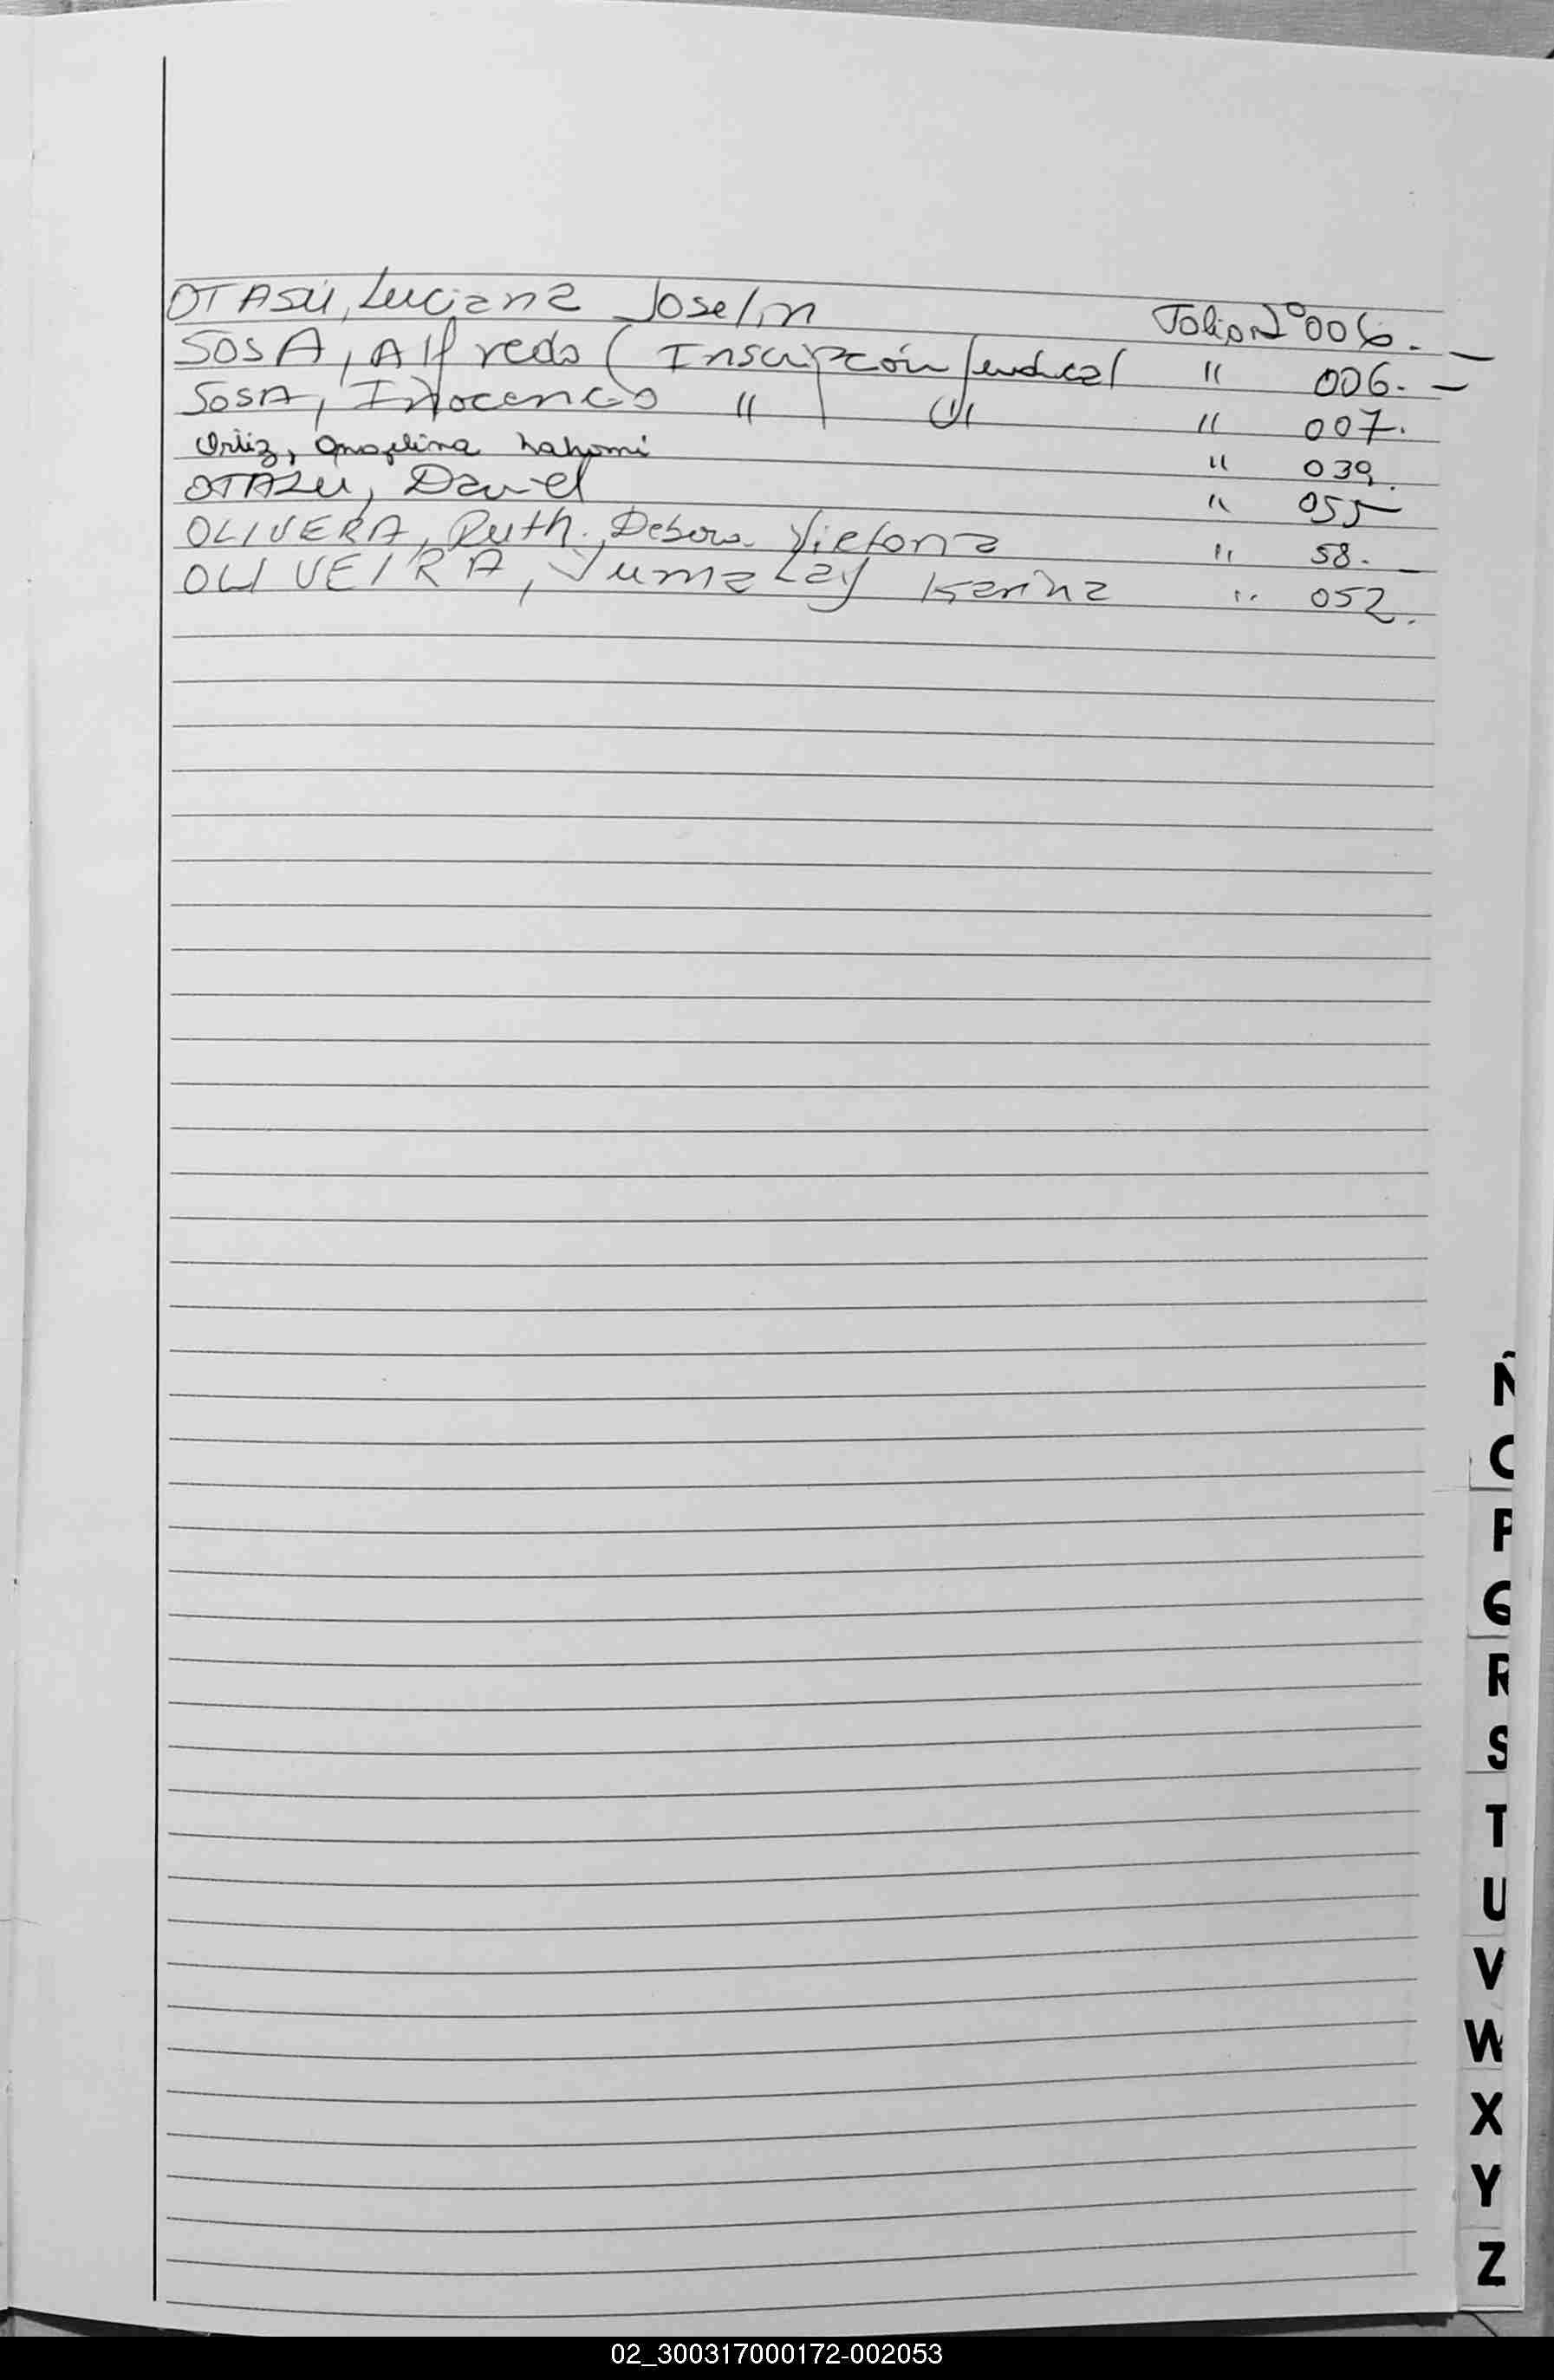 OTASÚ, Luciana Joselin Folio Nº 006. _
SOSA, Alfredo ( Inscripción Judicial " 006. _
SOSA, Inocencio " " " 007.
Ortiz, Angelina Nahomi " 039.
OTAZU, Daniel " 055
OLIVERA, Ruth. Debora Victoria " 58. _
OLIVEIRA, Karina " 052.
Ñ
O
P
Q
R
S
T
U
V
W
X
Y
Z
02_300317000172-002053